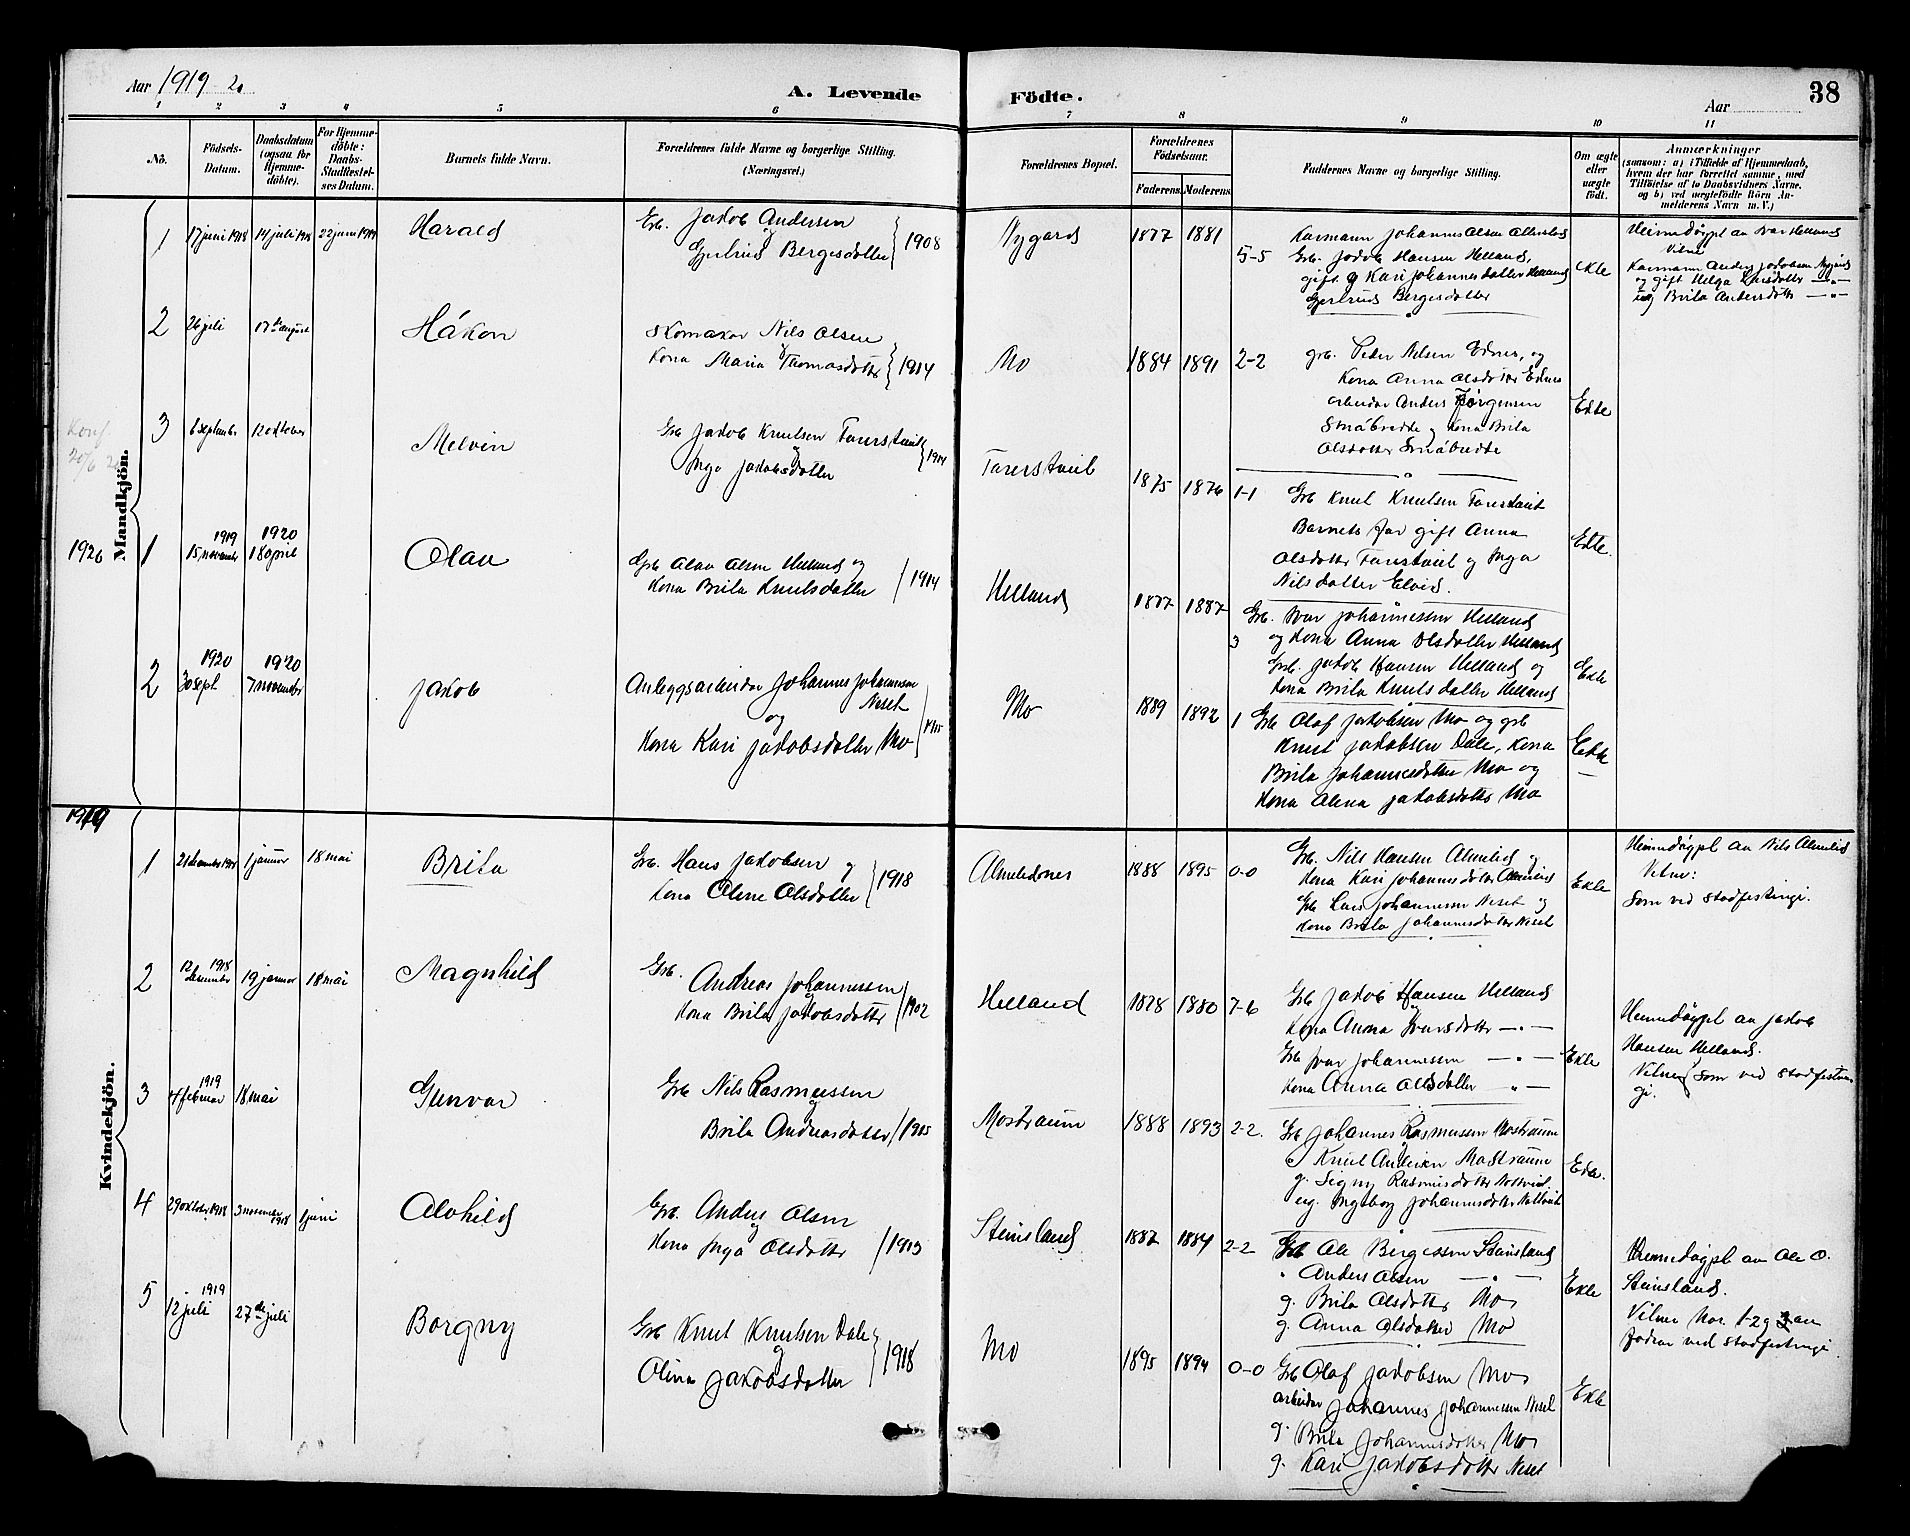 Aar 1919-20
A. Levende
Födte.
Aar
38
1 2 3 4 5 6 7 8 9 10 11
No.
Födsels-
Datum.
Daabsdatum
(ogsaa for
Hjemme-
döbte).
For Hjemme-
döbte:
Daabs-
Stadfæstel-
ses Datum.
Barnets fulde Navn.
Forældrenes fulde Navne og borgerlige Stilling.
(Næringsvei.)
Forældrenes Bopæl.
Forældrenes
Födselsaar.
Faderens.
Moderens.
Faddernes Navne og borgerlige Stilling.
Om ægte
eller
uægte
födt.
Anmærkninger
(saasom: a) i Tilfælde af Hjemmedaab,
hvem der har forrettet samme, med
Tilföielse af to Daabsvidners Navne,
og b) ved uægtefödte Börn An-
melderens Navn m. V.)
Mandkjön.
1 17 juni 1918 14 juli 1918 22 juni 1919 Harald
Grb. Jakob Andersen
og
Gjertrud Bergesdotter 1908
Nygard 1877 1881 5-5
Grb. Jakob Hansen Helland,
gift g Kari Johannesdotter Helland
Gjertrud Bergesdotter
Ekte
Heimedøypt av Ivar Helland
Vitne
og gift Helga Larsdotter —"—
ug Brita Andersdotter —"—
2 26 juli 17de august Håkon
Skomakar Nils Olsen
og
Kona Maria Thomasdotter 1914
Mo 1884 1891 2-2
grb. Peder Nilsen Eidnes, og
Kona Anna Olsdotter Eidnes
arbeidar Anders Jørgensen
Småbrekke og Kona Brita
Olsdotter Småbrekke
Ekte
3 6 september 12 oktober Melvin
Grb Jakob Knutsen Farestveit
og
Inga Jakobsdotter 1914
Farestveit 1875 1876 1-1
Grb Knut Knutsen Farestveit
Barnets far gift Anna
Olsdotter Farestveit og Inga
Nilsdotter Eknes.
Ekte.
Konf
1920
1 1919 15 november 1920 18 april Olav
Grb Olav Olsen Helland og
Kona Brita Knutsdotter 1914
Helland 1877 1887 3
Grb. Ivar Johannessen Helland
og Kona Anna Olsdotter Helland
Grb. Jakob Hansen Helland og
Kona Brita Knutsdotter Helland
Ekte
2 1920 30 sept. 1920 7 november Jakob
Anleggsarbeidar Johannes Johannessen
Neset
og
Kona Kari Jakobsdotter Mo 1915
Mo 1889 1892 1
Grb Olaf Jakobsen Mo og grb
Knut Jakobsen Dale, Kona
Brita Johannesdotter Mo og
Kona Olina Jakobsdotter Mo
Ekte
1919
Kvindekjön.
1 1 januar 18 mai Brita
Grb. Hans Jakobsen og
Kona Oline Olsdotter 1918
1888 1895 0-0
Grb. Nils Hansen Almelid og
Kona Kari Johannesdotter Almelid
Grb Lars Johannessen Neset og
Kona Brita Johannesdotter Neset
Ekte
Heimedøypt av Nils Almelid
Vitne:
Som ved stadfestingi.
2 1918 12 desember 19 januar 18 mai Magnhild
Grb. Andreas Johannessen
og
Kona Brita Jakobsdotter 1902
Helland 1878 1880 7-6
Grb Jakob Hansen Helland
Kona Anna Ivarsdotter —"—
Grb Ivar Johannessen —"—
Kona Anna Olsdotter —"—
Ekte
Heimedøypt av Jakob
Hansen Helland.
Vitner som ved stadfestin-
gi.
3 1919 4 februar 18 mai Gunvor
Grb Nils Rasmussen
og
Brita Andreasdotter 1915
Mostraum 1888 1893 2-2.
Grb Johannes Rasmussen Mostraum
" Knut Andersen Mostraum
g. Signy Rasmusdotter
ug. Ingeborg Johannesdotter
Ekte.
4 29 oktober 1918 3 november 1918 1 juni Alvhild
Grb. Anders Olsen
og
Kona Inga Olsdotter 1913
Steinsland 1887 1884 2-2
Grb Ole Bergessen Steinsland
" Anders Olsen —"—
g. Brita Olsdotter Mo
g. Anna Olsdotter Mo
Ekte
Heimedøypt av Ole O.
Steinsland.
Vitner Nor. 1-2 g 3 av
fadrar ved stadfestingi.
5 1919 12 juli 27de juli Borgny
Grb Knut Knutsen Dale
og
Olina Jakobsdotter 1918
Mo 1895 1894 0-0
Grb Olaf Jakobsen Mo
arbeidar Johannes Johannessen Neset
g. Brita Johannesdotter Mo
g. Kari Jakobsdotter Neset
Ekte